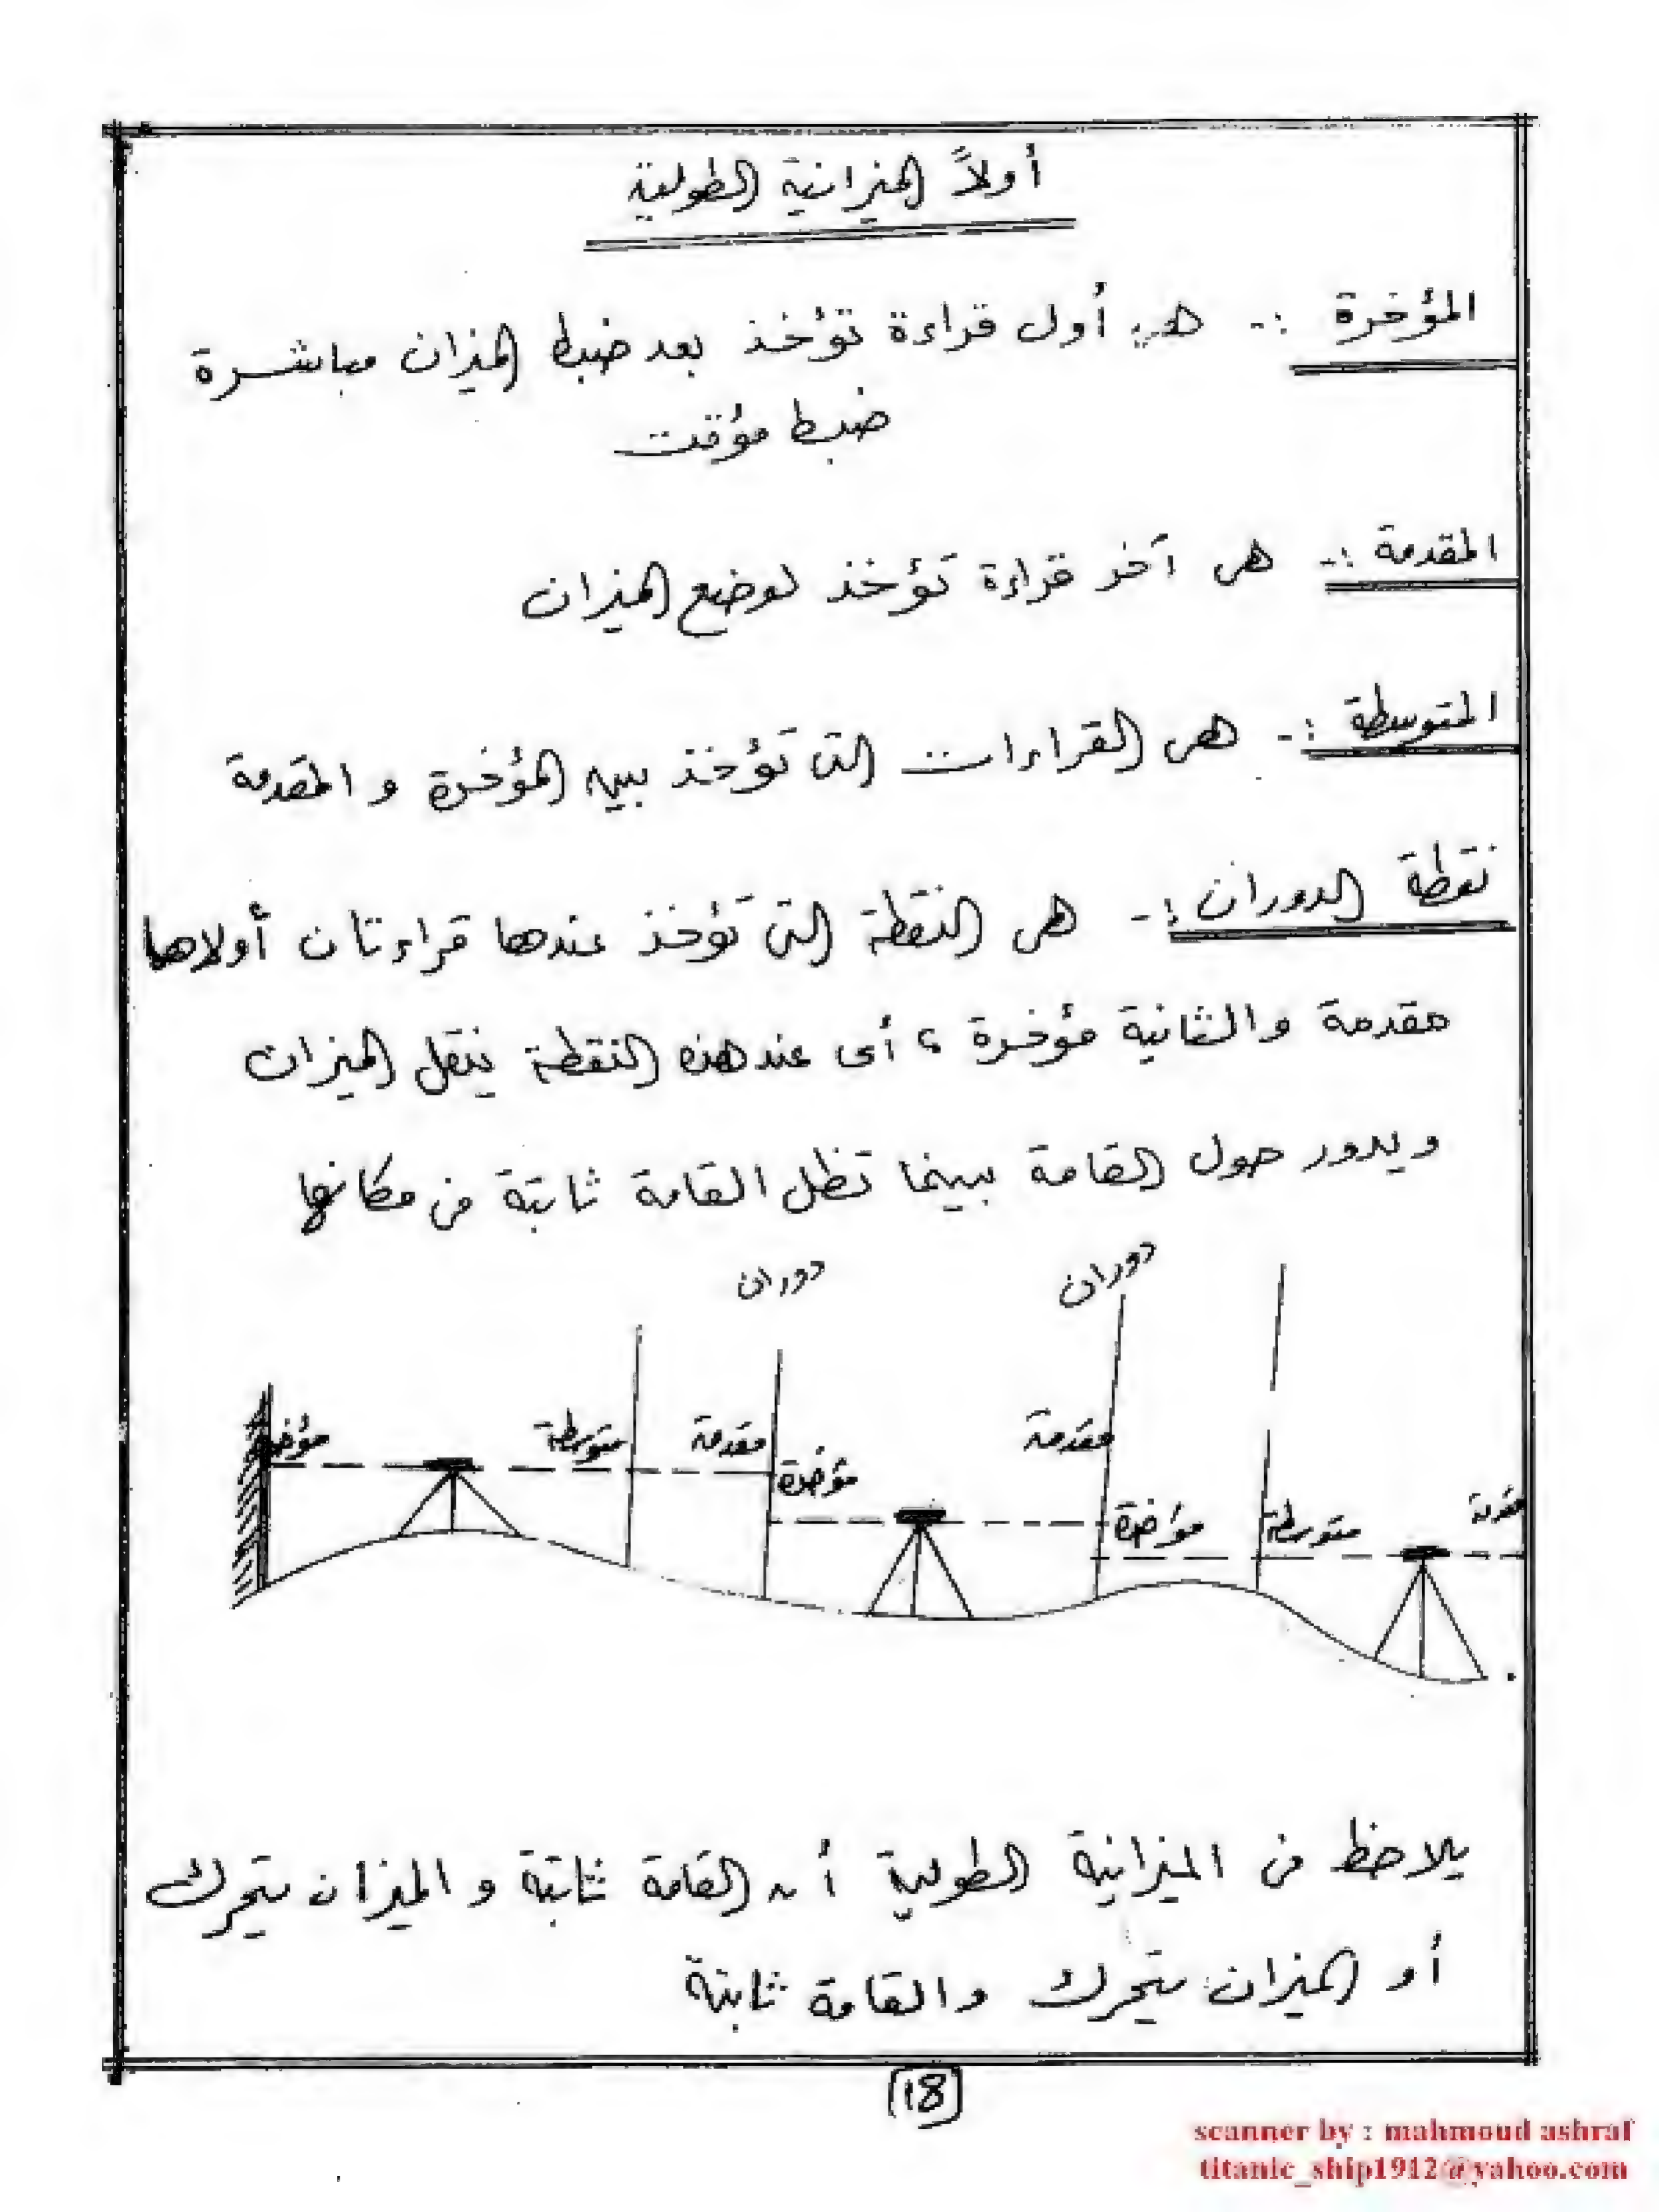 أولاً الميزانية الطولية
المؤخرة :- هى أول قراءة تؤخذ بعد ضبط الميزان مباشرة
ضبط مؤقت
المقدمة :- هى آخر قراءة تؤخذ لوضع الميزان
المتوسطة :- هى القراءات التى تؤخذ بين المؤخرة و المقدمة
نقطة الدوران :- هى النقطة التى تؤخذ عندها قراءتان أولاها
مقدمة والثانية مؤخرة ، أى عند هذه النقطة ينقل الميزان
ويدور حول القامة بينما تظل القامة ثابتة فى مكانها
دوران
دوران
مؤخرة
متوسطة
مقدمة
مؤخرة
مقدمة
مؤخرة
متوسطة
مقدمة
يلاحظ فى الميزانية الطولية أن القامة ثابتة و الميزان يتحرك
أو الميزان يتحرك والقامة ثابتة
(18)
scanner by : mahmoud ashraf
titanic_ship1912@yahoo.com